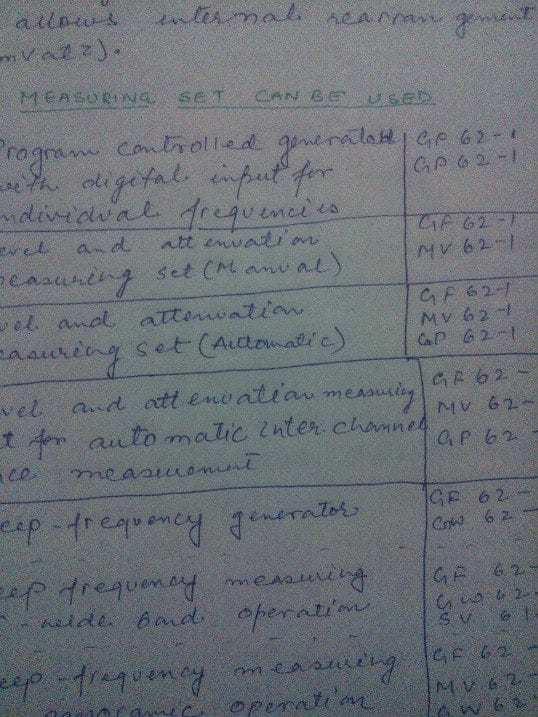 allows internal rearrangement
mVatz).
MEASURING SET CAN BE USED
Program controlled generator GF 62-1
with digital input for GP 62-1
individual frequencies
evel and attenuation GF 62-1
measuring set (Manual) MV 62-1
vel and attenuation GF 62-1
easuring set (Automatic) MV 62-1
GP 62-1
vel and attenuation measuring GF 62-
t for automatic inter.channel MV 62-
ce measurement GP 62-
eep-frequency generator GF 62-
GW 62-
eep frequency measuring GF 62-
- wide band operation GW 62-
SV 61-
eep-frequency measuring GF 62-
panoramic operation MV 62-
GW 62-